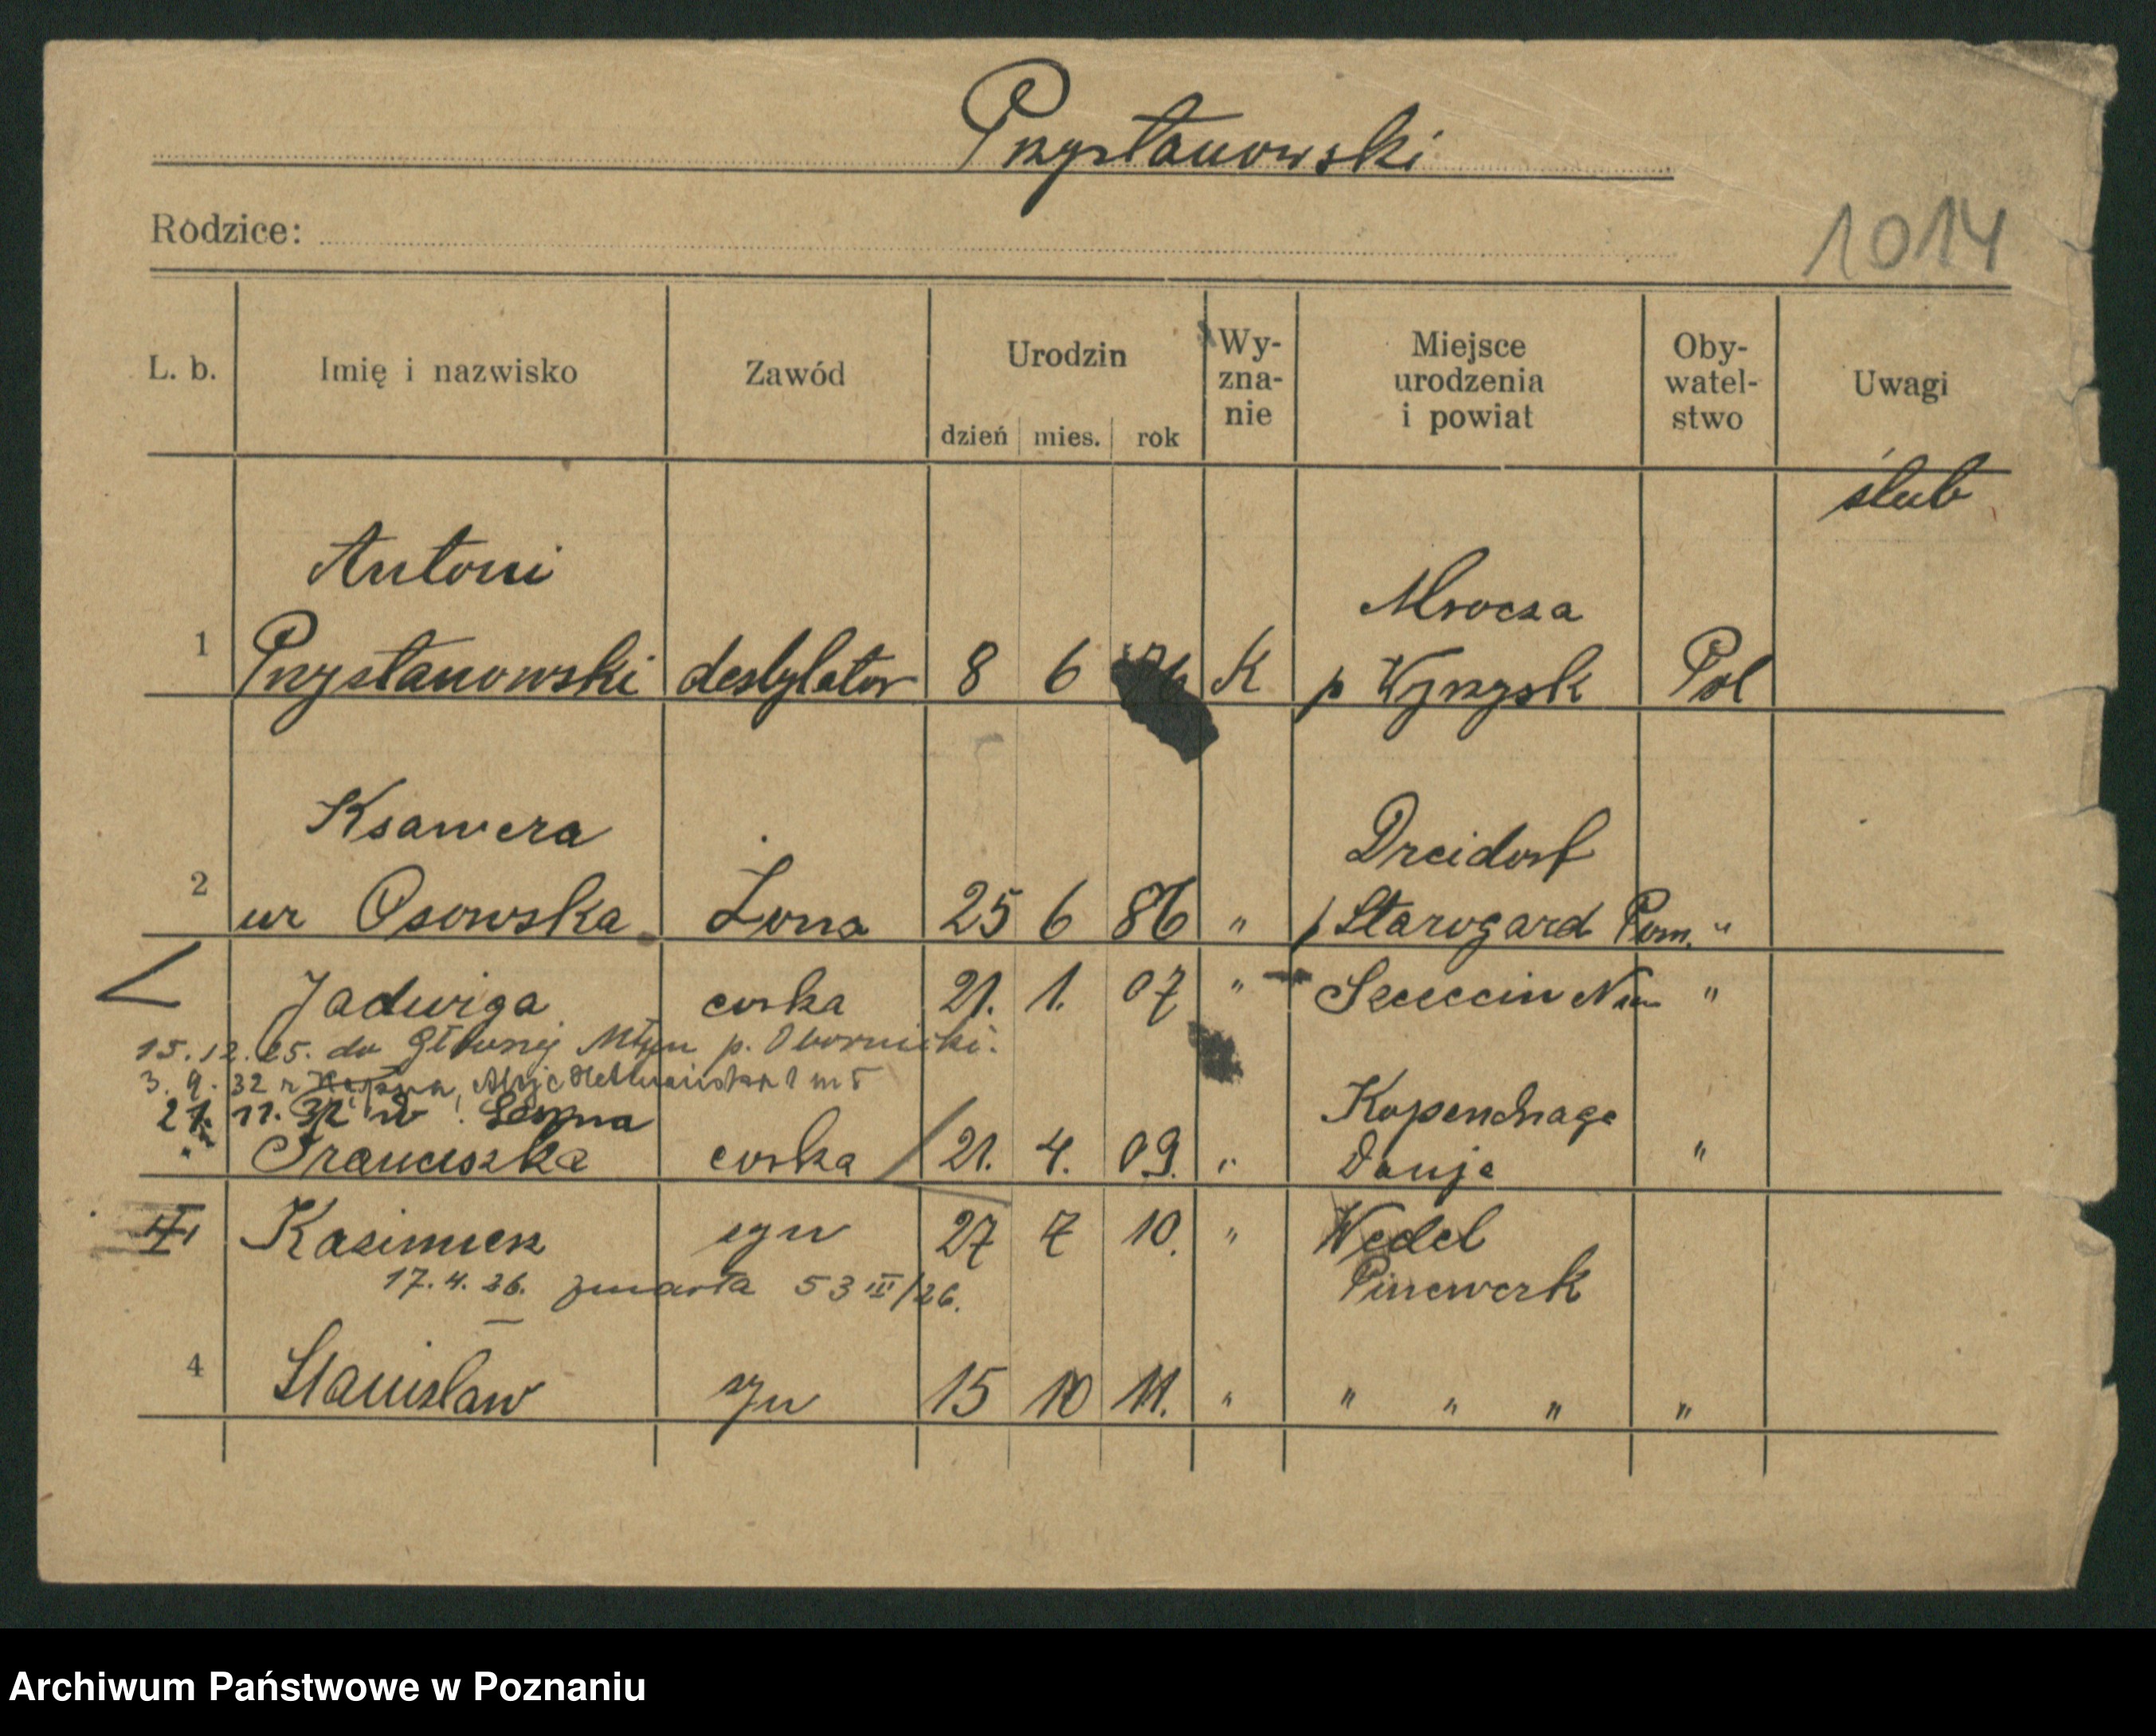 Przystanowski
Rodzice:
1014
L. b. Imię i nazwisko Zawód Urodzin dzień mies. rok Wy-zna-nie Miejsce urodzenia i powiat Oby-watel-stwo Uwagi
ślub
Antoni Mrocza
1 Przystanowski destylator 8 6 K p Wyrzysk Pol
Ksawera Dreidorf
2 ur Osowska Żona 25 6 86 " p Starogard Pom. "
Jadwiga corka 21. 1. 07 " Szczecin "
15.12.25. do Głownej Młyn p. Oborniki.
3. 9. 32 r
21. 11. 32
Franciszka corka 21. 4. 09. " Kopenhaga Danja "
Kazimierz syn 27 7 10. " Wedel
17.4.26. zmarła 53 III/26. Pinewerk
4 Stanisław syn 15 10 11. " " " " "
Archiwum Państwowe w Poznaniu